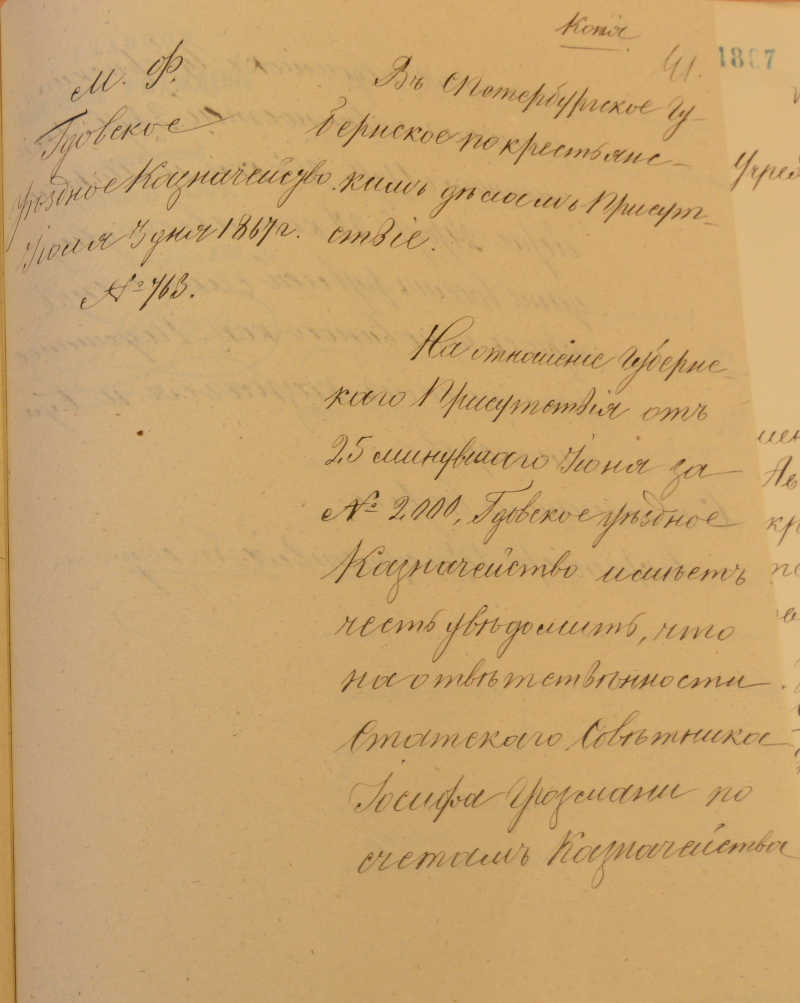 Копія
41.
1867
М. Ф.
Гдовское
Уѣздное Казначейство.
Іюля 3 дня 1867 г.
№ 763.
Въ СПетербургское Гу-
бернское по крестьянс-
кимъ дѣламъ Присут-
ствіе.
На отношеніе Губернс-
каго Присутствія отъ
25 минувшаго Іюня за
№ 2000, Гдовское уѣздное
Казначейство имѣетъ
честь увѣдомить, что
на отвѣтствѣнности
Статскаго Совѣтника
Іосифа
по
счетамъ Казначейства